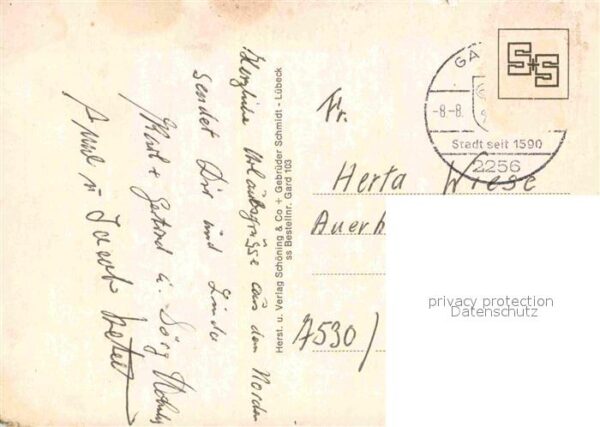 Herzliche Urlaubsgrüsse aus dem Norden
sendet Dir und Linde
Karl + Gertrud u. Jörg
Herst. u. Verlag Schöning & Co + Gebrüder Schmidt - Lübeck
ss Bestellnr. Gard 103
S+S
GA
-8.-8.
Stadt seit 1590
2256
Fr.
Herta Wiese
Auerh
7530/
privacy protection
Datenschutz